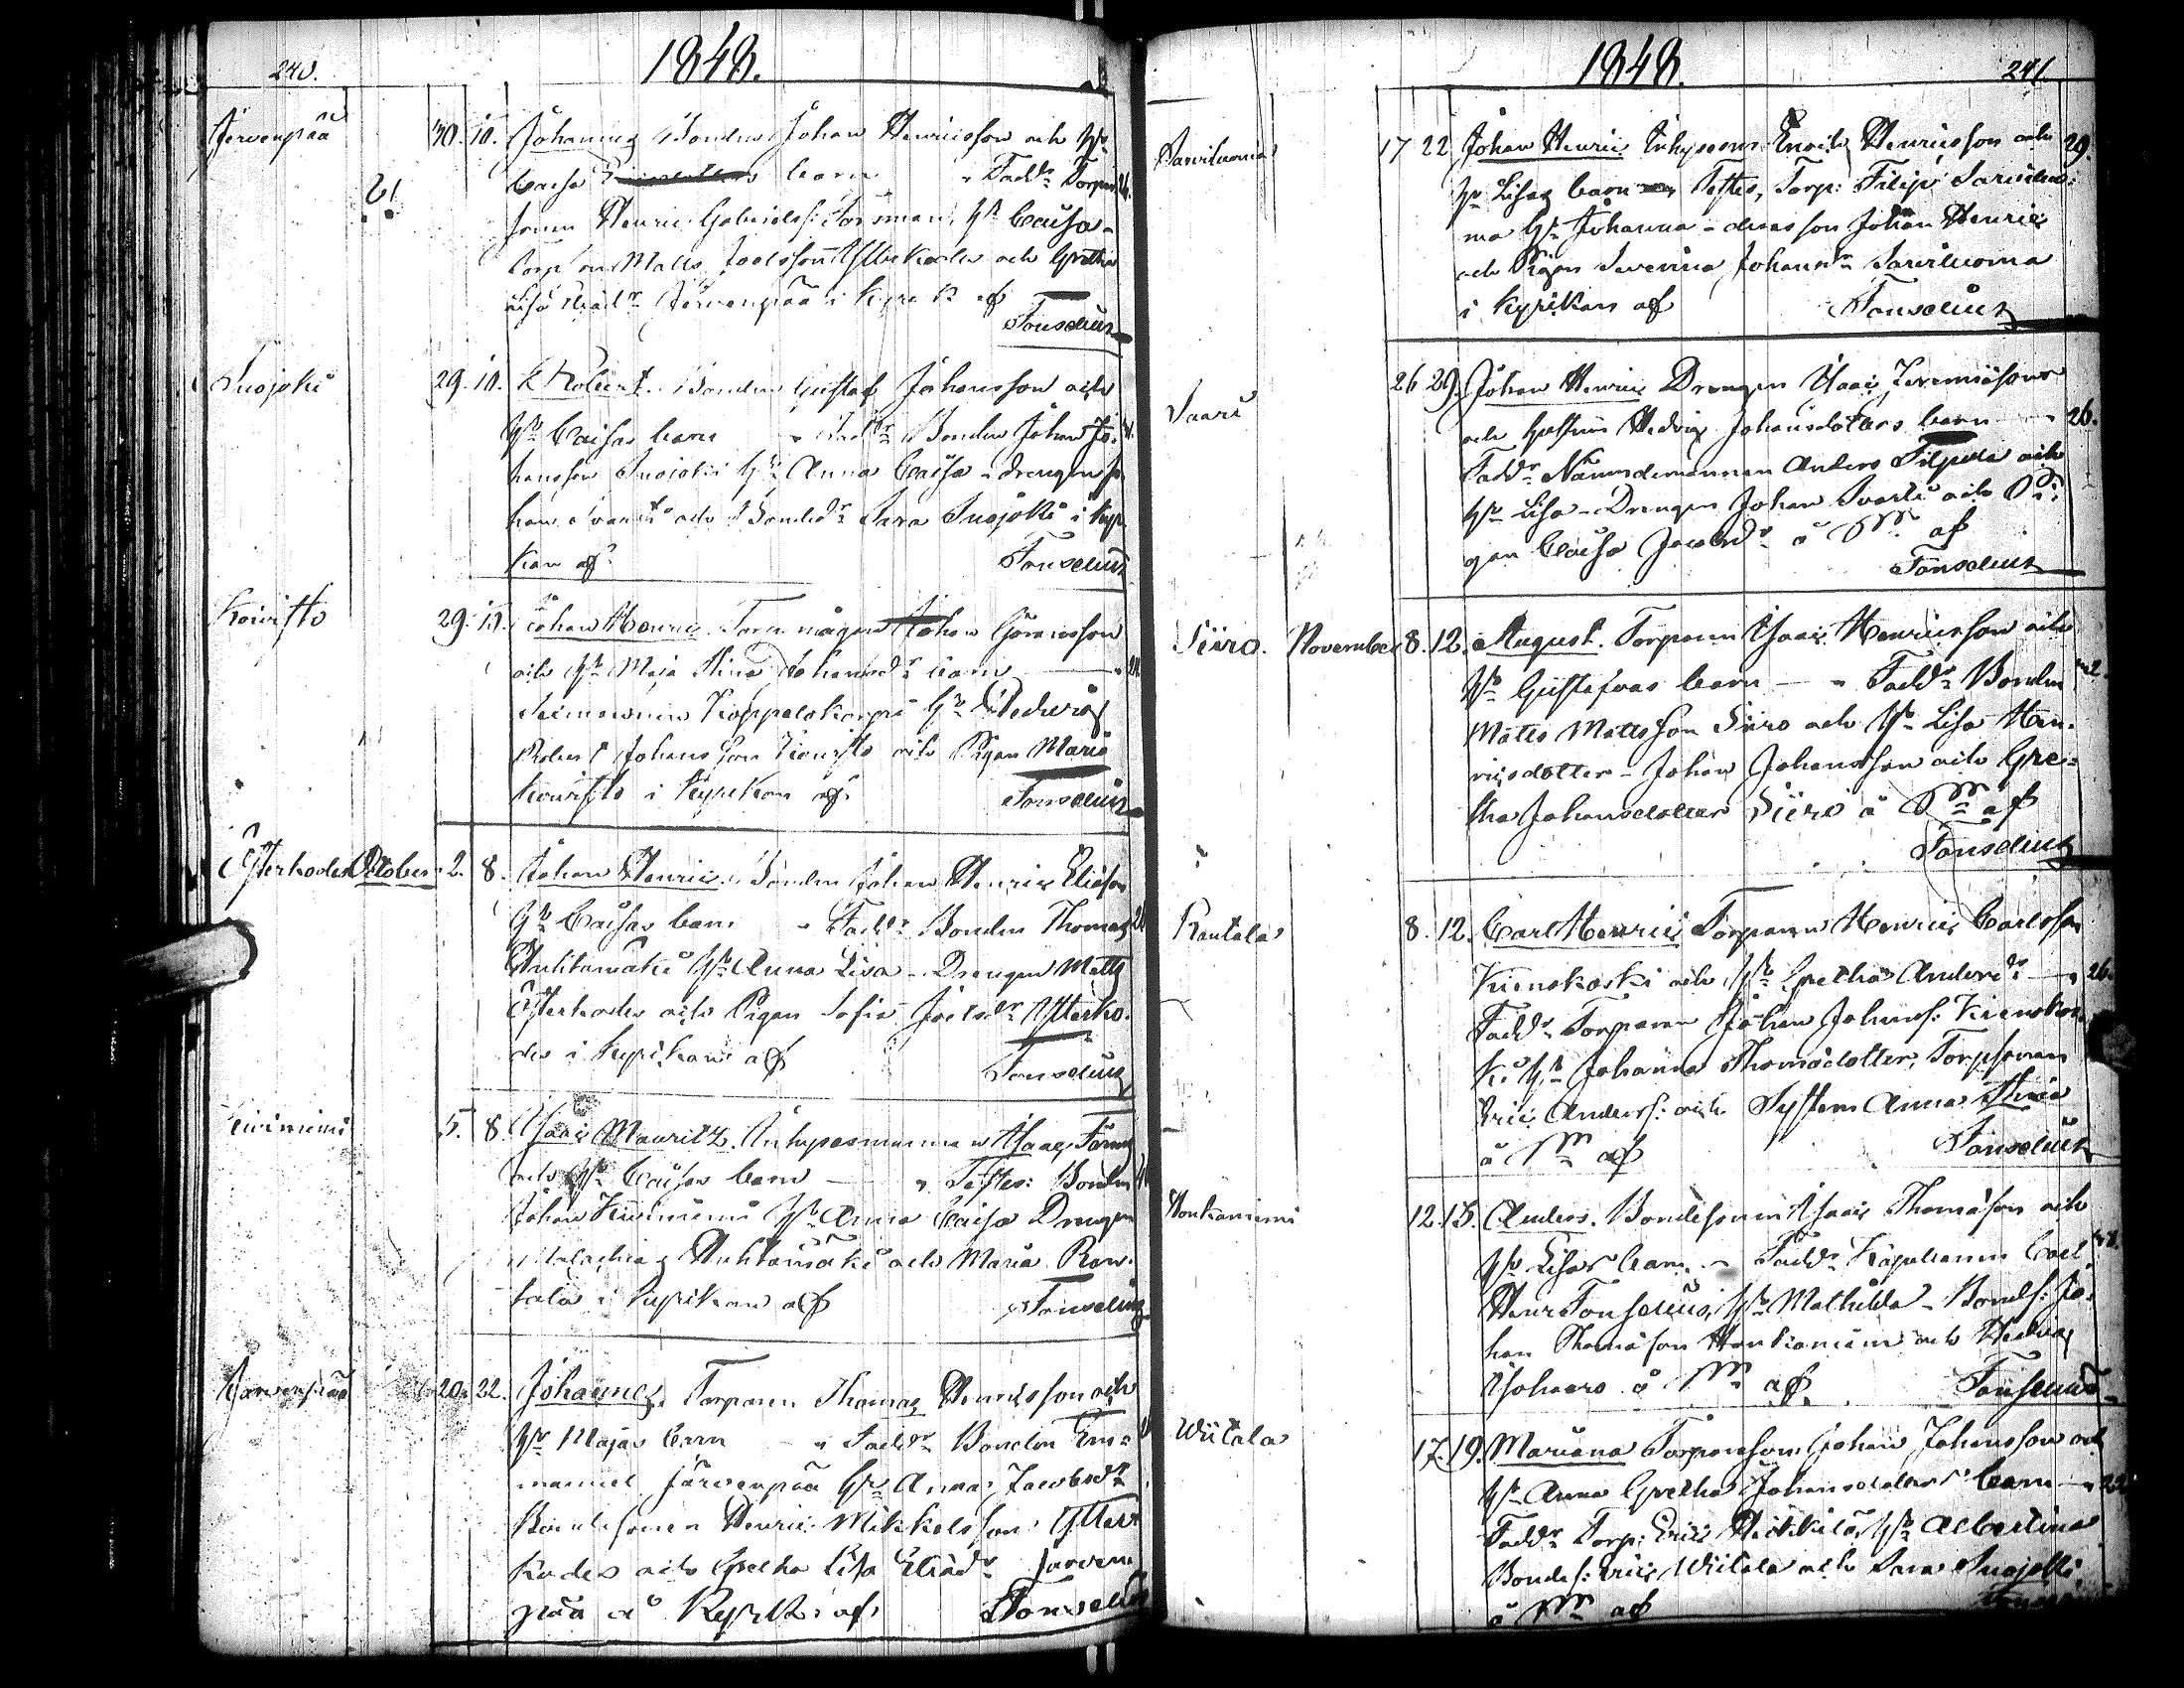 240.
1848.
Järvenpää 30. 10. Johannes, Bonden Johan Henricsson och H:u
Caisas barn " Fadd:r Torpare 26.
sonen Henric Gabrielss: Forsman, H:u Caisa -
Torp: son Matts Joelsson Ytterkodes och Gretha
Lisa Eliæd:r Järvenpää i Kyrk: af
Fonselius
Suojoki 29. 10. Robert. Bonden Gustaf Johansson och
H:u Caisas barn " Fadd:r Bonden Johan Jo-
hansson Suojoki H:u Anna Caisa - drengen Jo
han och Bonded:r Sara Suojoki i Kyr
kan af Fonselius
Koivisto 29. 10. Johan Henric. Torp. mågen Johan Göransson
och H:u Maja Stina Johansd:r barn
Koppelokorpi H:u Hedvig
Robert Johansson Koivisto och Pigan Maria
Koivisto i Kyrkan af Fonselius
Österkodes October 2. 8. Johan Henric. Bonden Johan Henric Eliæson
H:u Caisas barn " Fadd:r Bonden Thomas
Huhtamäki H:u Anna Lisa - Drengen Matts
Österkodes och Pigan Sofia Joelsd:r Ytterko-
des i Kyrkan af
Fonselius
Kiviniemi 5. 8. Isaac Mauritz. Inhysesmannen Isaac
och H:u Caisas barn " Testes: Bonden
Johan Kiviniemi H:u Anna Caisa Drengen
Malachias Huhtamäki och Maria Ran-
tala i Kyrkan af Fonselius
Järvenpää 20. 22. Johannes, Torparen Thomas Henricsson och
H:u Majas barn " Fadd:r Bonden Em-
manuel Järvenpää H:u Anna Jacobsd:r
Bondesonen Henric Mikkelsson Ytter
kodes och Gretha Lisa Eliæd:r Järven
pää i Kyrk: af Fonselius
1848.
241.
Sarviluoma 17 22 Johan Henric Inhysesm: Enoch Henricsson och 29.
H:u Lisas barn Testes, Torp: Filip Sarviluo-
ma H:u Johanna - deras son Johan Henric
och Pigan Severina Johansd:r Sarviluoma
i Kyrkan af Fonselius
Saari 26 29. Johan Henric Drengen Isaac Jeremiæsons
och Hustrun Hedvig Johansdotters barn " 26.
Fadd:r Nämndemannen Anders Filpula och
H:u Lisa - Drengen Johan Svarti och Pi-
gan Caisa Jacobsd:r å S:m af
Fonselius
Siiro. November 8. 12. August. Torparen Isaac Henricsson och
H:u Gustafvas barn " Fadd:r Bonden
Matts Mattsson Siiro och H:u Lisa Hen-
ricsdotter - Johan Johansson och Gre-
tha Johansdotter Siiro å S:m af
Fonselius
Rantala 8. 12. Carl Henric Torparen Henric Carlsson
Kienskoski och H:u Gretha Andersd:r " 26.
Fadd:r Torparen Johan Johanss: Kienskos
ki H:u Johanna Thomædotter, Torpsonen
Eric Anderss: och Systern Anna Stina
å S:m af Fonselius
Honkaniemi 12. 15. Anders. Bondesonen Isaac Thomæson och
H:u Lisas barn " Fadd:r Kapellanen Carl
Henr Fonselius, H:u Mathilda - Bondes: Jo-
han Thomæson Honkaniemi och Hedvig
Isohaaro å S:m af Fonselius
Wiitala 17. 19. Mariana Torparesonen Johan Johansson och
H:u Anna Gretha Johansdotters barn " 22.
Fadd:r Torp: Eric Heikkilä, H:u Albertina
Bondes: Eric Wiitala och Sara Suojoki
å S:m af